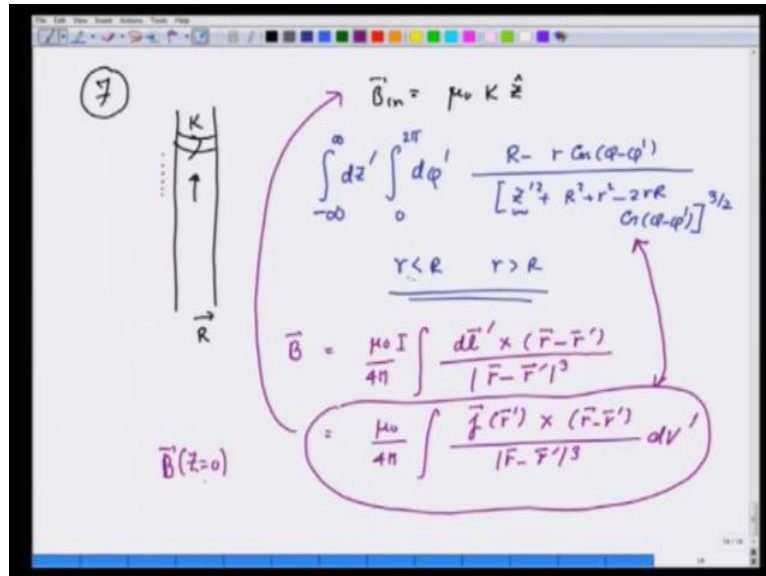 File Edit View Insert Actions Tools Help
7
B⃗in = μ₀ K ẑ
K
∫_{-∞}^{∞} dz' ∫_{0}^{2π} dφ' (R - r Cos(φ-φ')) / [z'² + R² + r² - 2rR Cos(φ-φ')]^{3/2}
r < R r > R
R⃗
B⃗ = μ₀I/4π ∫ dl⃗' × (r⃗-r⃗') / |r⃗-r⃗'|³
= μ₀/4π ∫ j⃗(r⃗') × (r⃗-r⃗') / |r⃗-r⃗'|³ dv'
B⃗(z=0)